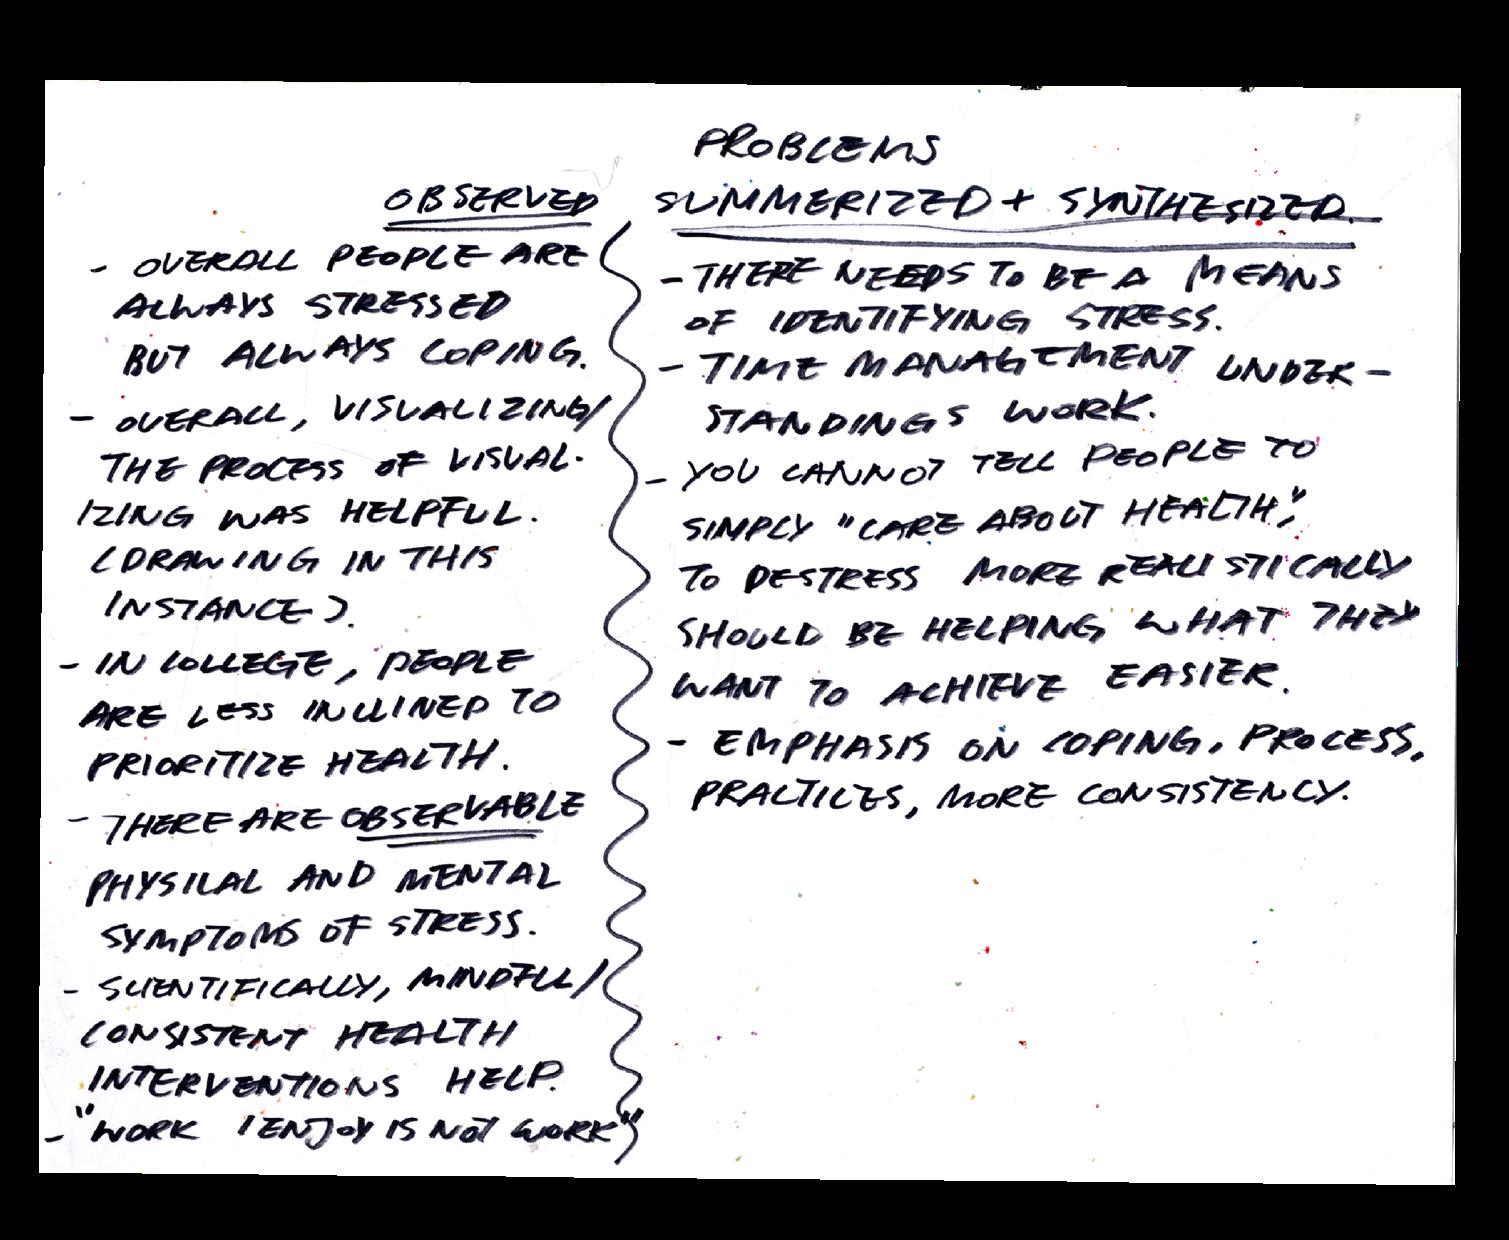 OBSERVED
- OVERALL PEOPLE ARE
ALWAYS STRESSED
BUT ALWAYS COPING.
- OVERALL, VISUALIZING/
THE PROCESS OF VISUAL-
IZING WAS HELPFUL.
(DRAWING IN THIS
INSTANCE).
- IN COLLEGE, PEOPLE
ARE LESS INCLINED TO
PRIORITIZE HEALTH.
- THERE ARE OBSERVABLE
PHYSICAL AND MENTAL
SYMPTOMS OF STRESS.
- SCIENTIFICALLY, MINDFUL/
CONSISTENT HEALTH
INTERVENTIONS HELP.
- "WORK I ENJOY IS NOT WORK"
PROBLEMS
SUMMERIZED + SYNTHESIZED.
- THERE NEEDS TO BE A MEANS
OF IDENTIFYING STRESS.
- TIME MANAGEMENT UNDER-
STANDINGS WORK.
- YOU CANNOT TELL PEOPLE TO
SIMPLY "CARE ABOUT HEALTH",
TO DESTRESS MORE REALISTICALLY
SHOULD BE HELPING WHAT THEY
WANT TO ACHIEVE EASIER.
- EMPHASIS ON COPING, PROCESS,
PRACTICES, MORE CONSISTENCY.